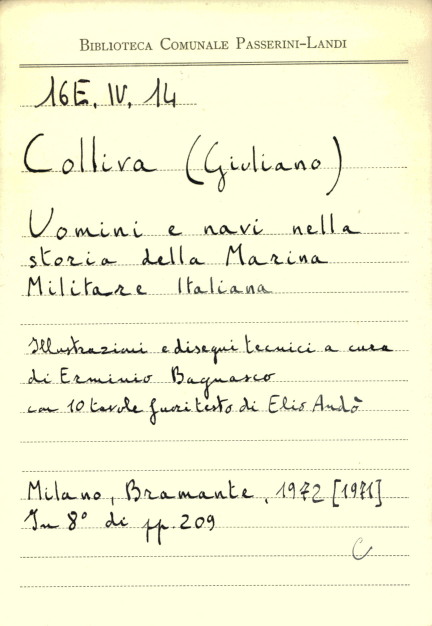 BIBLIOTECA COMUNALE PASSERINI-LANDI
16E. IV. 14
Colliva (Giuliano)
Uomini e navi nella
storia della Marina
Militare Italiana
Illustrazioni e disegni tecnici a cura
di Erminio Bagnasco
con 10 tavole fuori testo di Elio Andò
Milano, Bramante, 1972 [1971]
In 8° di pp. 209
C